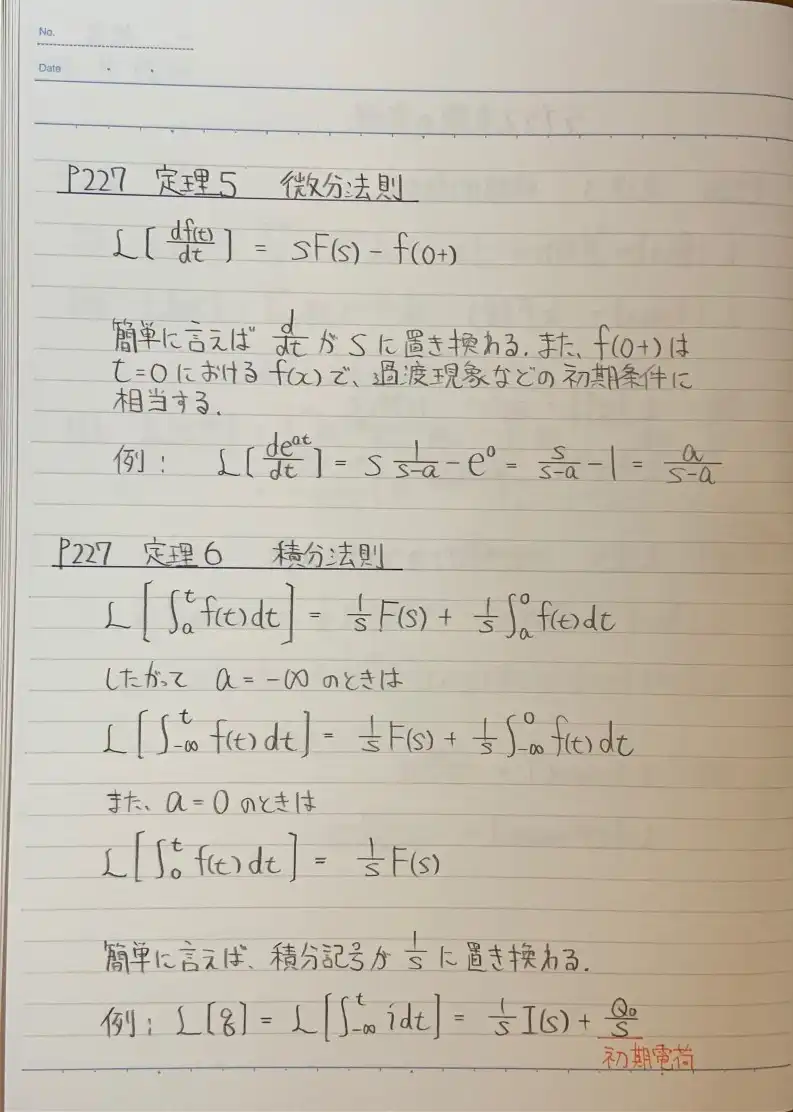 No.
Date
P227 定理5 微分法則
L[df(t)/dt] = sF(s) - f(0+)
簡単に言えば d/dt が s に置き換わる. また、f(0+)は
t=0 における f(x) で、過渡現象などの初期条件に
相当する.
例: L[de^at/dt] = s 1/(s-a) - e^0 = s/(s-a) - 1 = a/(s-a)
P227 定理6 積分法則
L[∫_a^t f(t)dt] = 1/s F(s) + 1/s ∫_a^0 f(t)dt
したがって a = -∞ のときは
L[∫_-∞^t f(t)dt] = 1/s F(s) + 1/s ∫_-∞^0 f(t)dt
また、a = 0 のときは
L[∫_0^t f(t)dt] = 1/s F(s)
簡単に言えば、積分記号が 1/s に置き換わる.
例: L[q] = L[∫_-∞^t i dt] = 1/s I(s) + Q₀/s
初期電荷